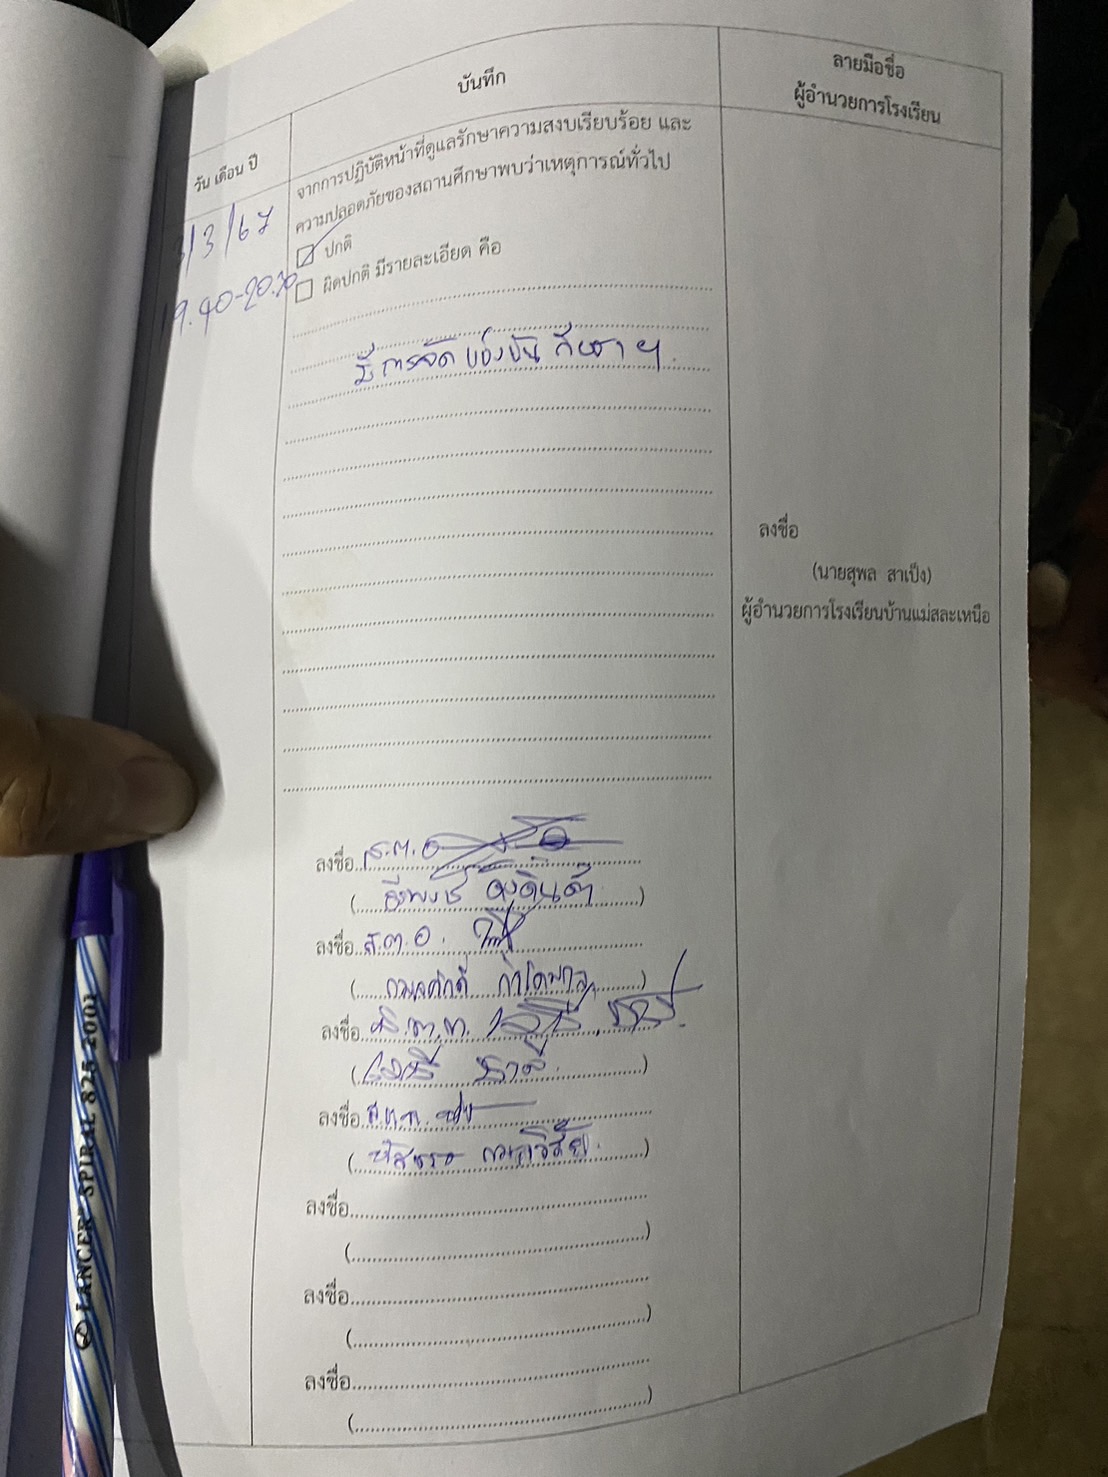 วัน เดือน ปี
บันทึก
ลายมือชื่อ
ผู้อำนวยการโรงเรียน
/3/67
19.40-20.20
จากการปฏิบัติหน้าที่ดูแลรักษาความสงบเรียบร้อย และ
ความปลอดภัยของสถานศึกษาพบว่าเหตุการณ์ทั่วไป
ปกติ
ผิดปกติ มีรายละเอียด คือ
มีการจัดแข่งขัน กีฬา ฯ
ลงชื่อ
(นายสุพล สาเป็ง)
ผู้อำนวยการโรงเรียนบ้านแม่สละเหนือ
ลงชื่อ ส.ต.อ
(.....)
ลงชื่อ ส.ต.อ.
(.....)
ลงชื่อ ส.ต.ท.
(.....)
ลงชื่อ ส.ต.ต.
(.....)
ลงชื่อ.....
(.....)
ลงชื่อ.....
(.....)
ลงชื่อ.....
(.....)
LANCER SPIRAL 825 2001